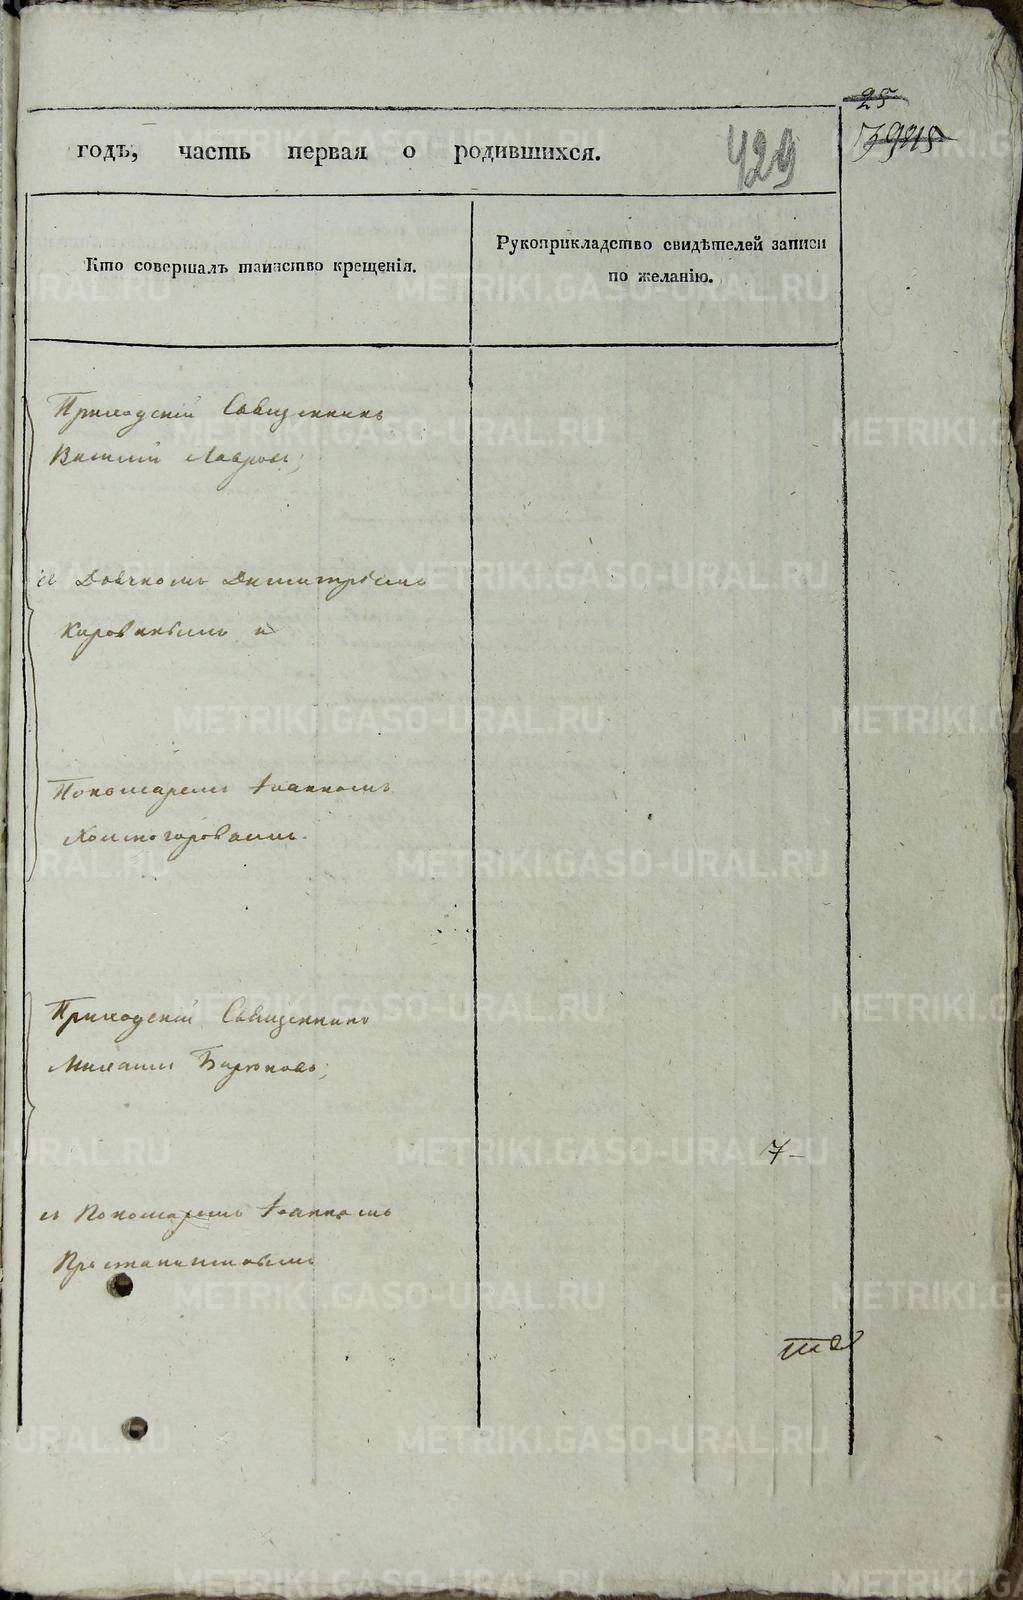 25
429
годъ, часть первая о родившихся.
Кто совершалъ таинство крещенія.
Рукоприкладство свидѣтелей записи
по желанію.
Приходскій Священникъ
Василій Лавровъ;
съ Дьячкомъ Димитріемъ
и
Пономаремъ Іоанномъ
Холмогоровымъ.
Приходскій Священникъ
Михаилъ Бирюковъ;
7-
съ Пономаремъ Іоанномъ
METRIKI.GASO-URAL.RU